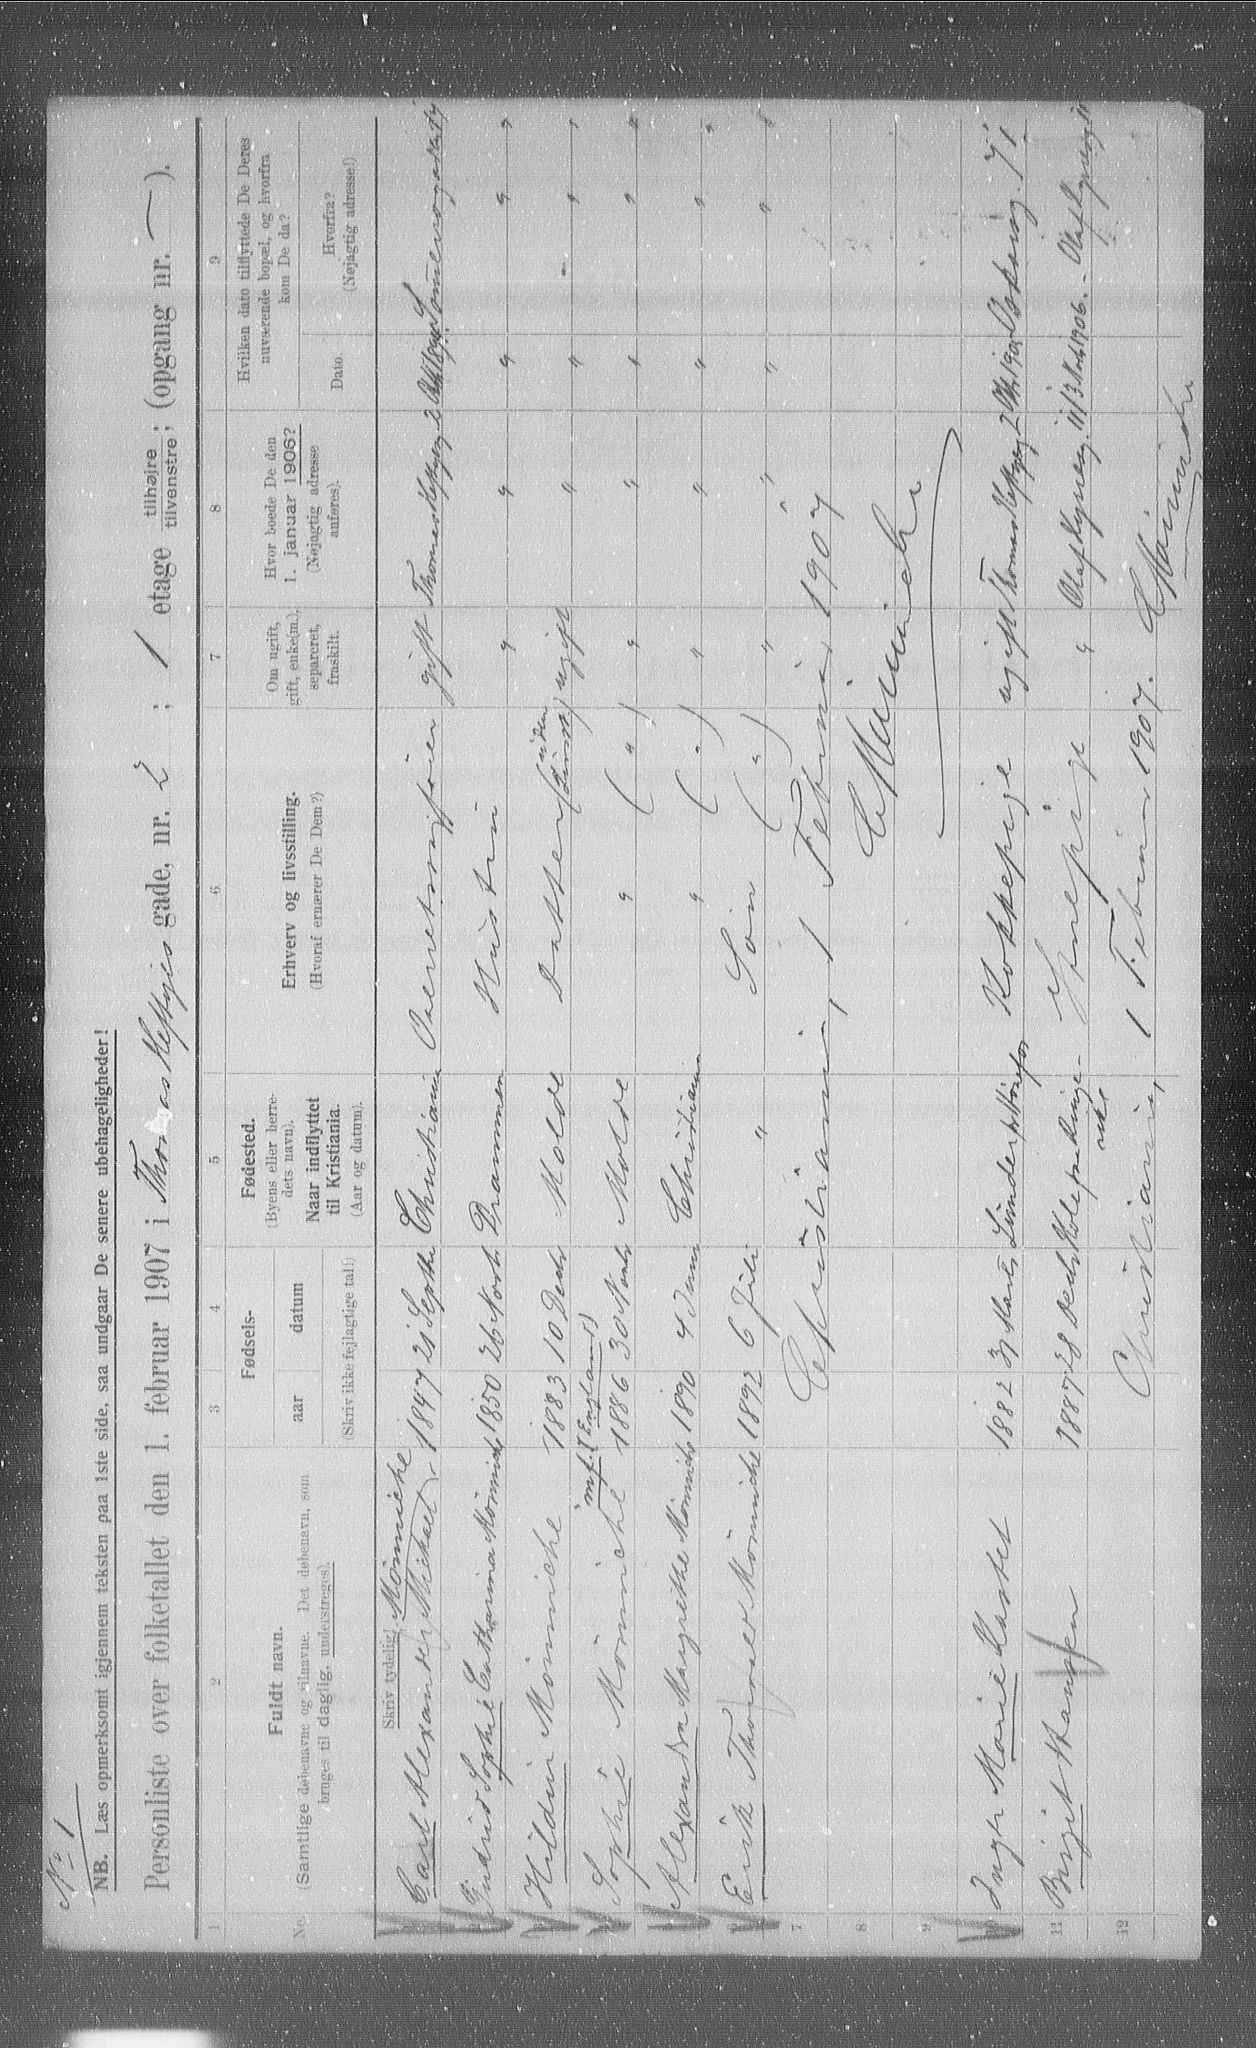 No 1
NB. Læs opmerksomt igjennem teksten paa 1ste side, saa undgaar De senere ubehageligheder!
Personliste over folketallet den 1. februar 1907 i Thomas Heftyes gade, nr. 2 ; 1 etage tilhøjre tilvenstre; (opgang nr. — ).
1 2 3 4 5 6 7 8 9
No.
Fuldt navn.
(Samtlige døbenavne og tilnavne. Det døbenavn, som
bruges til daglig, understreges).
Skriv tydelig!
Fødsels-
aar datum
(Skriv ikke fejlagtige tal!)
Fødested.
(Byens eller herre-
dets navn).
Naar indflyttet
til Kristiania.
(Aar og datum).
Erhverv og livsstilling.
(Hvoraf ernærer De Dem?)
Om ugift,
gift, enke(m.),
separeret,
fraskilt.
Hvor boede De den
1. januar 1906?
(Nøjagtig adresse
anføres).
Hvilken dato tilflyttede De Deres
nuværende bopæl, og hvorfra
kom De da?
Dato.
Hvorfra?
(Nøjagtig adresse!)
Mønniche
Carl Alexander Michael 1847 21 Septbr Christiania gift Thomas Heftyesg 2
Gudrid Sophie Cathrina Mønniche 1850 26 Novbr Drammen Hustru " " " " "
Hildur Mønniche 1883 10 Decbr Molde Datter (uden ugift " " " "
mf. I England)
Sophie Mønniche 1886 30 Molde " ( " ) " " " " "
Alexandra Margrethe Mønniche 1890 4 Juni Christiania " ( " ) " " " " "
Erik Thorvald Mønniche 1892 6 Juli " Søn ( " ) " " " " "
7 Christiania, 1 Februar 1907
8 CMønniche
9
10 Inger Marie 1882 31 Marts Hønefos Kokkepige ugift Thomas Heftyesg 2 Oscarsg. 71
11 Birgit Hansen 1887 28 Decbr Hole Ringe-
rike " Olaf Kyrresg. 11 1906. Olaf Kyrresg 11
12 Christiania, 1 Februar 1907. CMønniche